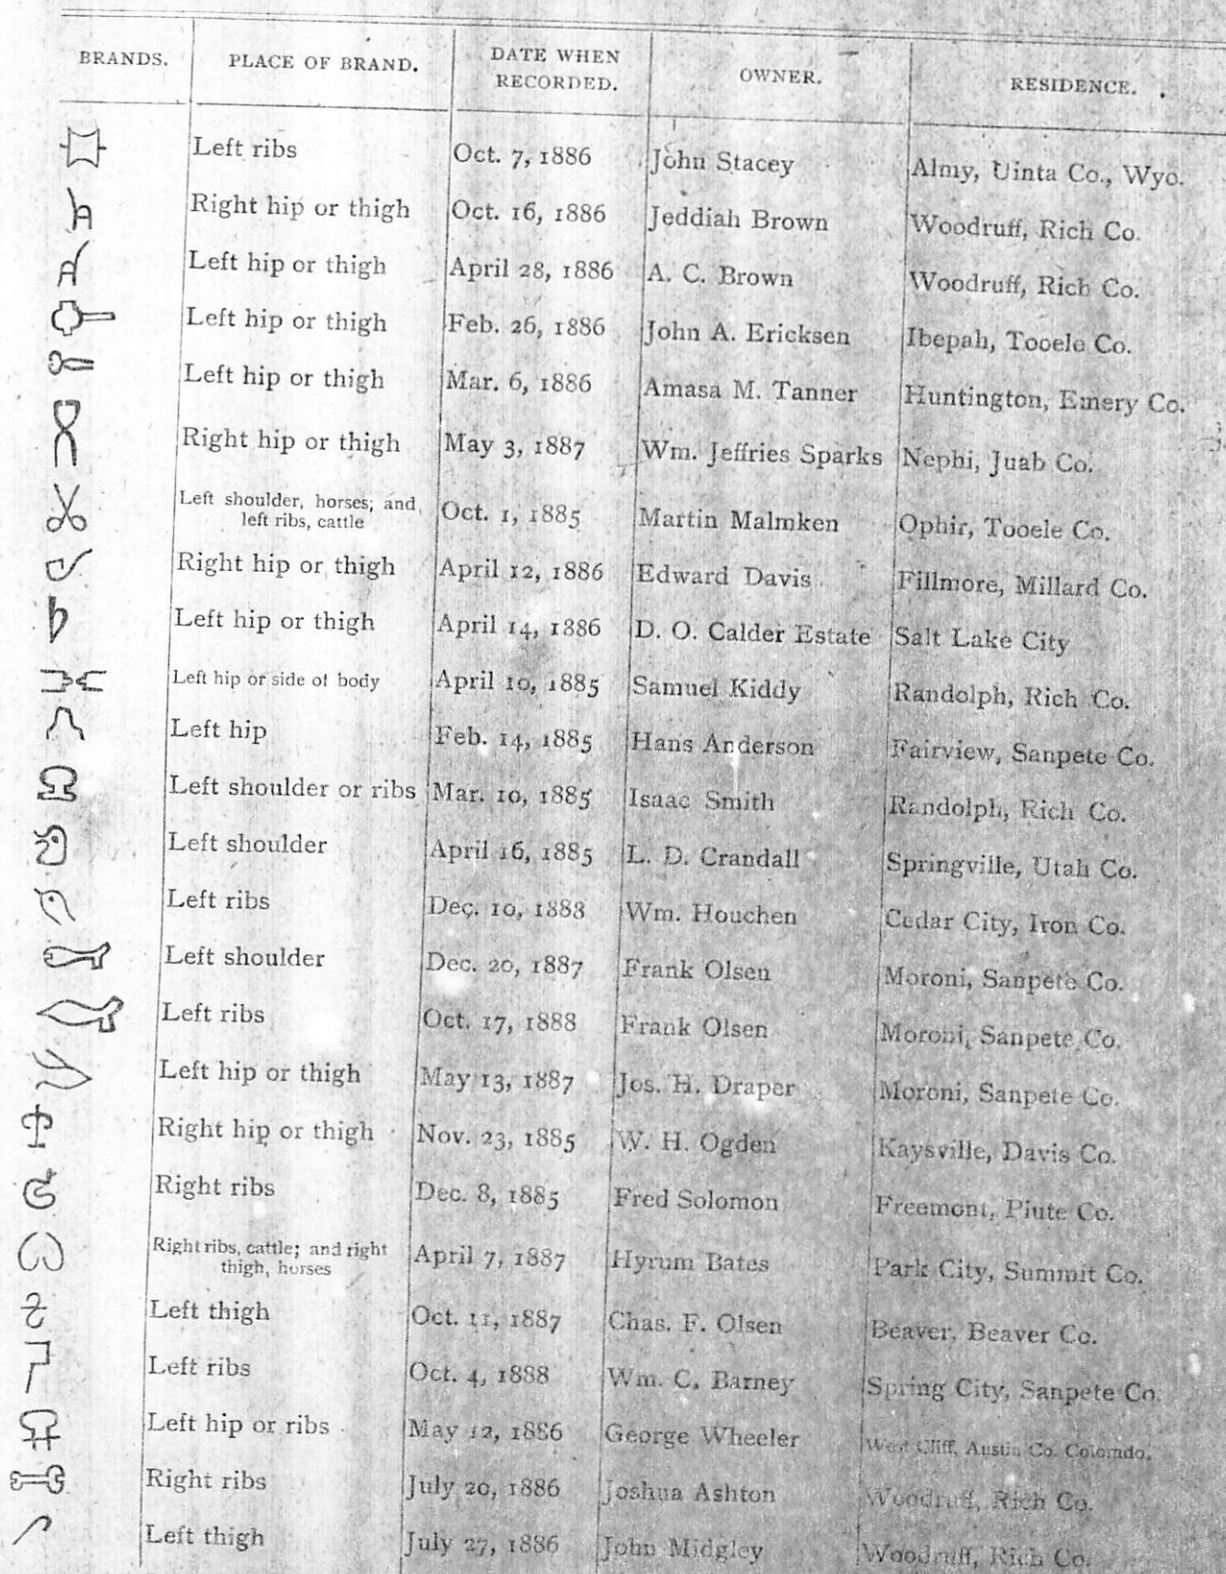 BRANDS. PLACE OF BRAND. DATE WHEN RECORDED. OWNER. RESIDENCE.
Left ribs Oct. 7, 1886 John Stacey Almy, Uinta Co., Wyo.
Right hip or thigh Oct. 16, 1886 Jeddiah Brown Woodruff, Rich Co.
Left hip or thigh April 28, 1886 A. C. Brown Woodruff, Rich Co.
Left hip or thigh Feb. 26, 1886 John A. Ericksen Ibepah, Tooele Co.
Left hip or thigh Mar. 6, 1886 Amasa M. Tanner Huntington, Emery Co.
Right hip or thigh May 3, 1887 Wm. Jeffries Sparks Nephi, Juab Co.
Left shoulder, horses; and left ribs, cattle Oct. 1, 1885 Martin Malmken Ophir, Tooele Co.
Right hip or thigh April 12, 1886 Edward Davis Fillmore, Millard Co.
Left hip or thigh April 14, 1886 D. O. Calder Estate Salt Lake City
Left hip or side of body April 10, 1885 Samuel Kiddy Randolph, Rich Co.
Left hip Feb. 14, 1885 Hans Anderson Fairview, Sanpete Co.
Left shoulder or ribs Mar. 10, 1885 Isaac Smith Randolph, Rich Co.
Left shoulder April 16, 1885 L. D. Crandall Springville, Utah Co.
Left ribs Dec. 10, 1888 Wm. Houchen Cedar City, Iron Co.
Left shoulder Dec. 20, 1887 Frank Olsen Moroni, Sanpete Co.
Left ribs Oct. 17, 1888 Frank Olsen Moroni, Sanpete Co.
Left hip or thigh May 13, 1887 Jos. H. Draper Moroni, Sanpete Co.
Right hip or thigh Nov. 23, 1885 W. H. Ogden Kaysville, Davis Co.
Right ribs Dec. 8, 1885 Fred Solomon Freemont, Piute Co.
Right ribs, cattle; and right thigh, horses April 7, 1887 Hyrum Bates Park City, Summit Co.
Left thigh Oct. 11, 1887 Chas. F. Olsen Beaver, Beaver Co.
Left ribs Oct. 4, 1888 Wm. C. Barney Spring City, Sanpete Co.
Left hip or ribs May 12, 1886 George Wheeler West Cliff, Austin Co. Colorado.
Right ribs July 20, 1886 Joshua Ashton Woodruff, Rich Co.
Left thigh July 27, 1886 John Midgley Woodruff, Rich Co.